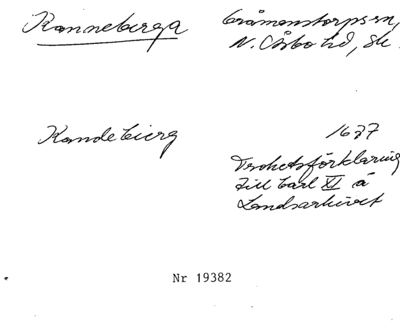 Kanneberga
Gråmanstorps sn,
N. Åsbo hd, Sk.
Kandebierg
1677
Trohetsförklaring
till Carl XI å
Landsarkivet
Nr 19382